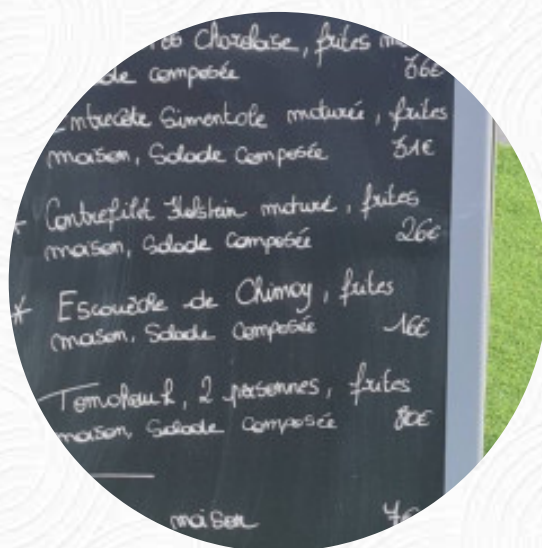 Charolaise, frites
composée 36€
Entrecôte Simentale maturée, frites
maison, Salade Composée 31€
Contrefilet Holstein maturé, frites
maison, Salade Composée 26€
* Escavèche de Chimay, frites
maison, Salade Composée 16€
Tomahawk, 2 personnes, frites
maison, Salade Composée 80€
maison